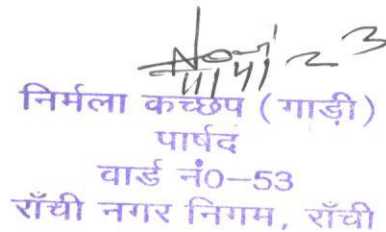 निर्मला कच्छप (गाड़ी)
पार्षद
वार्ड नं0–53
राँची नगर निगम, राँची